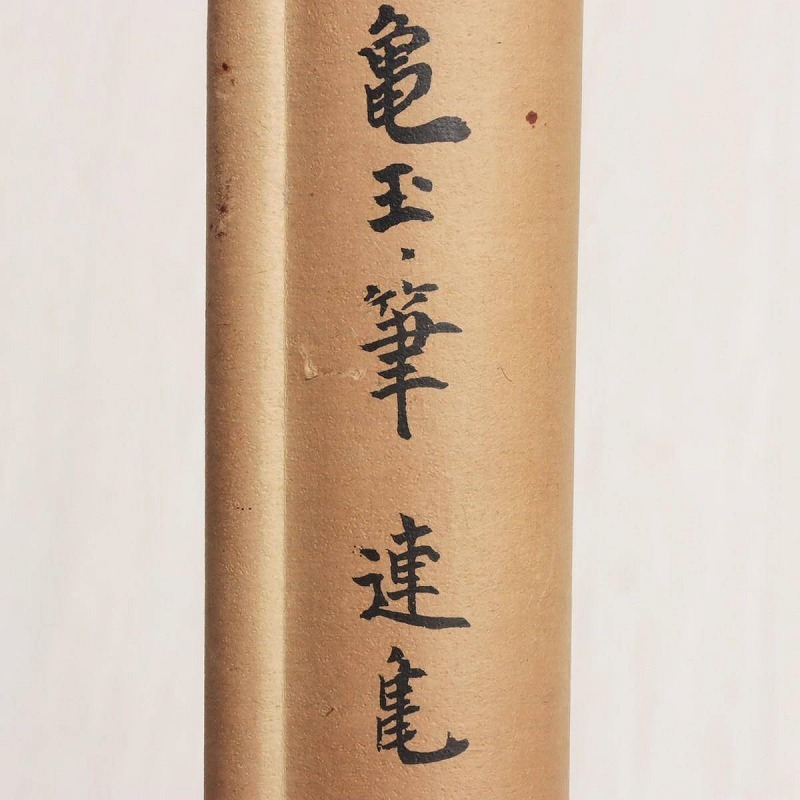 亀玉・筆 連亀